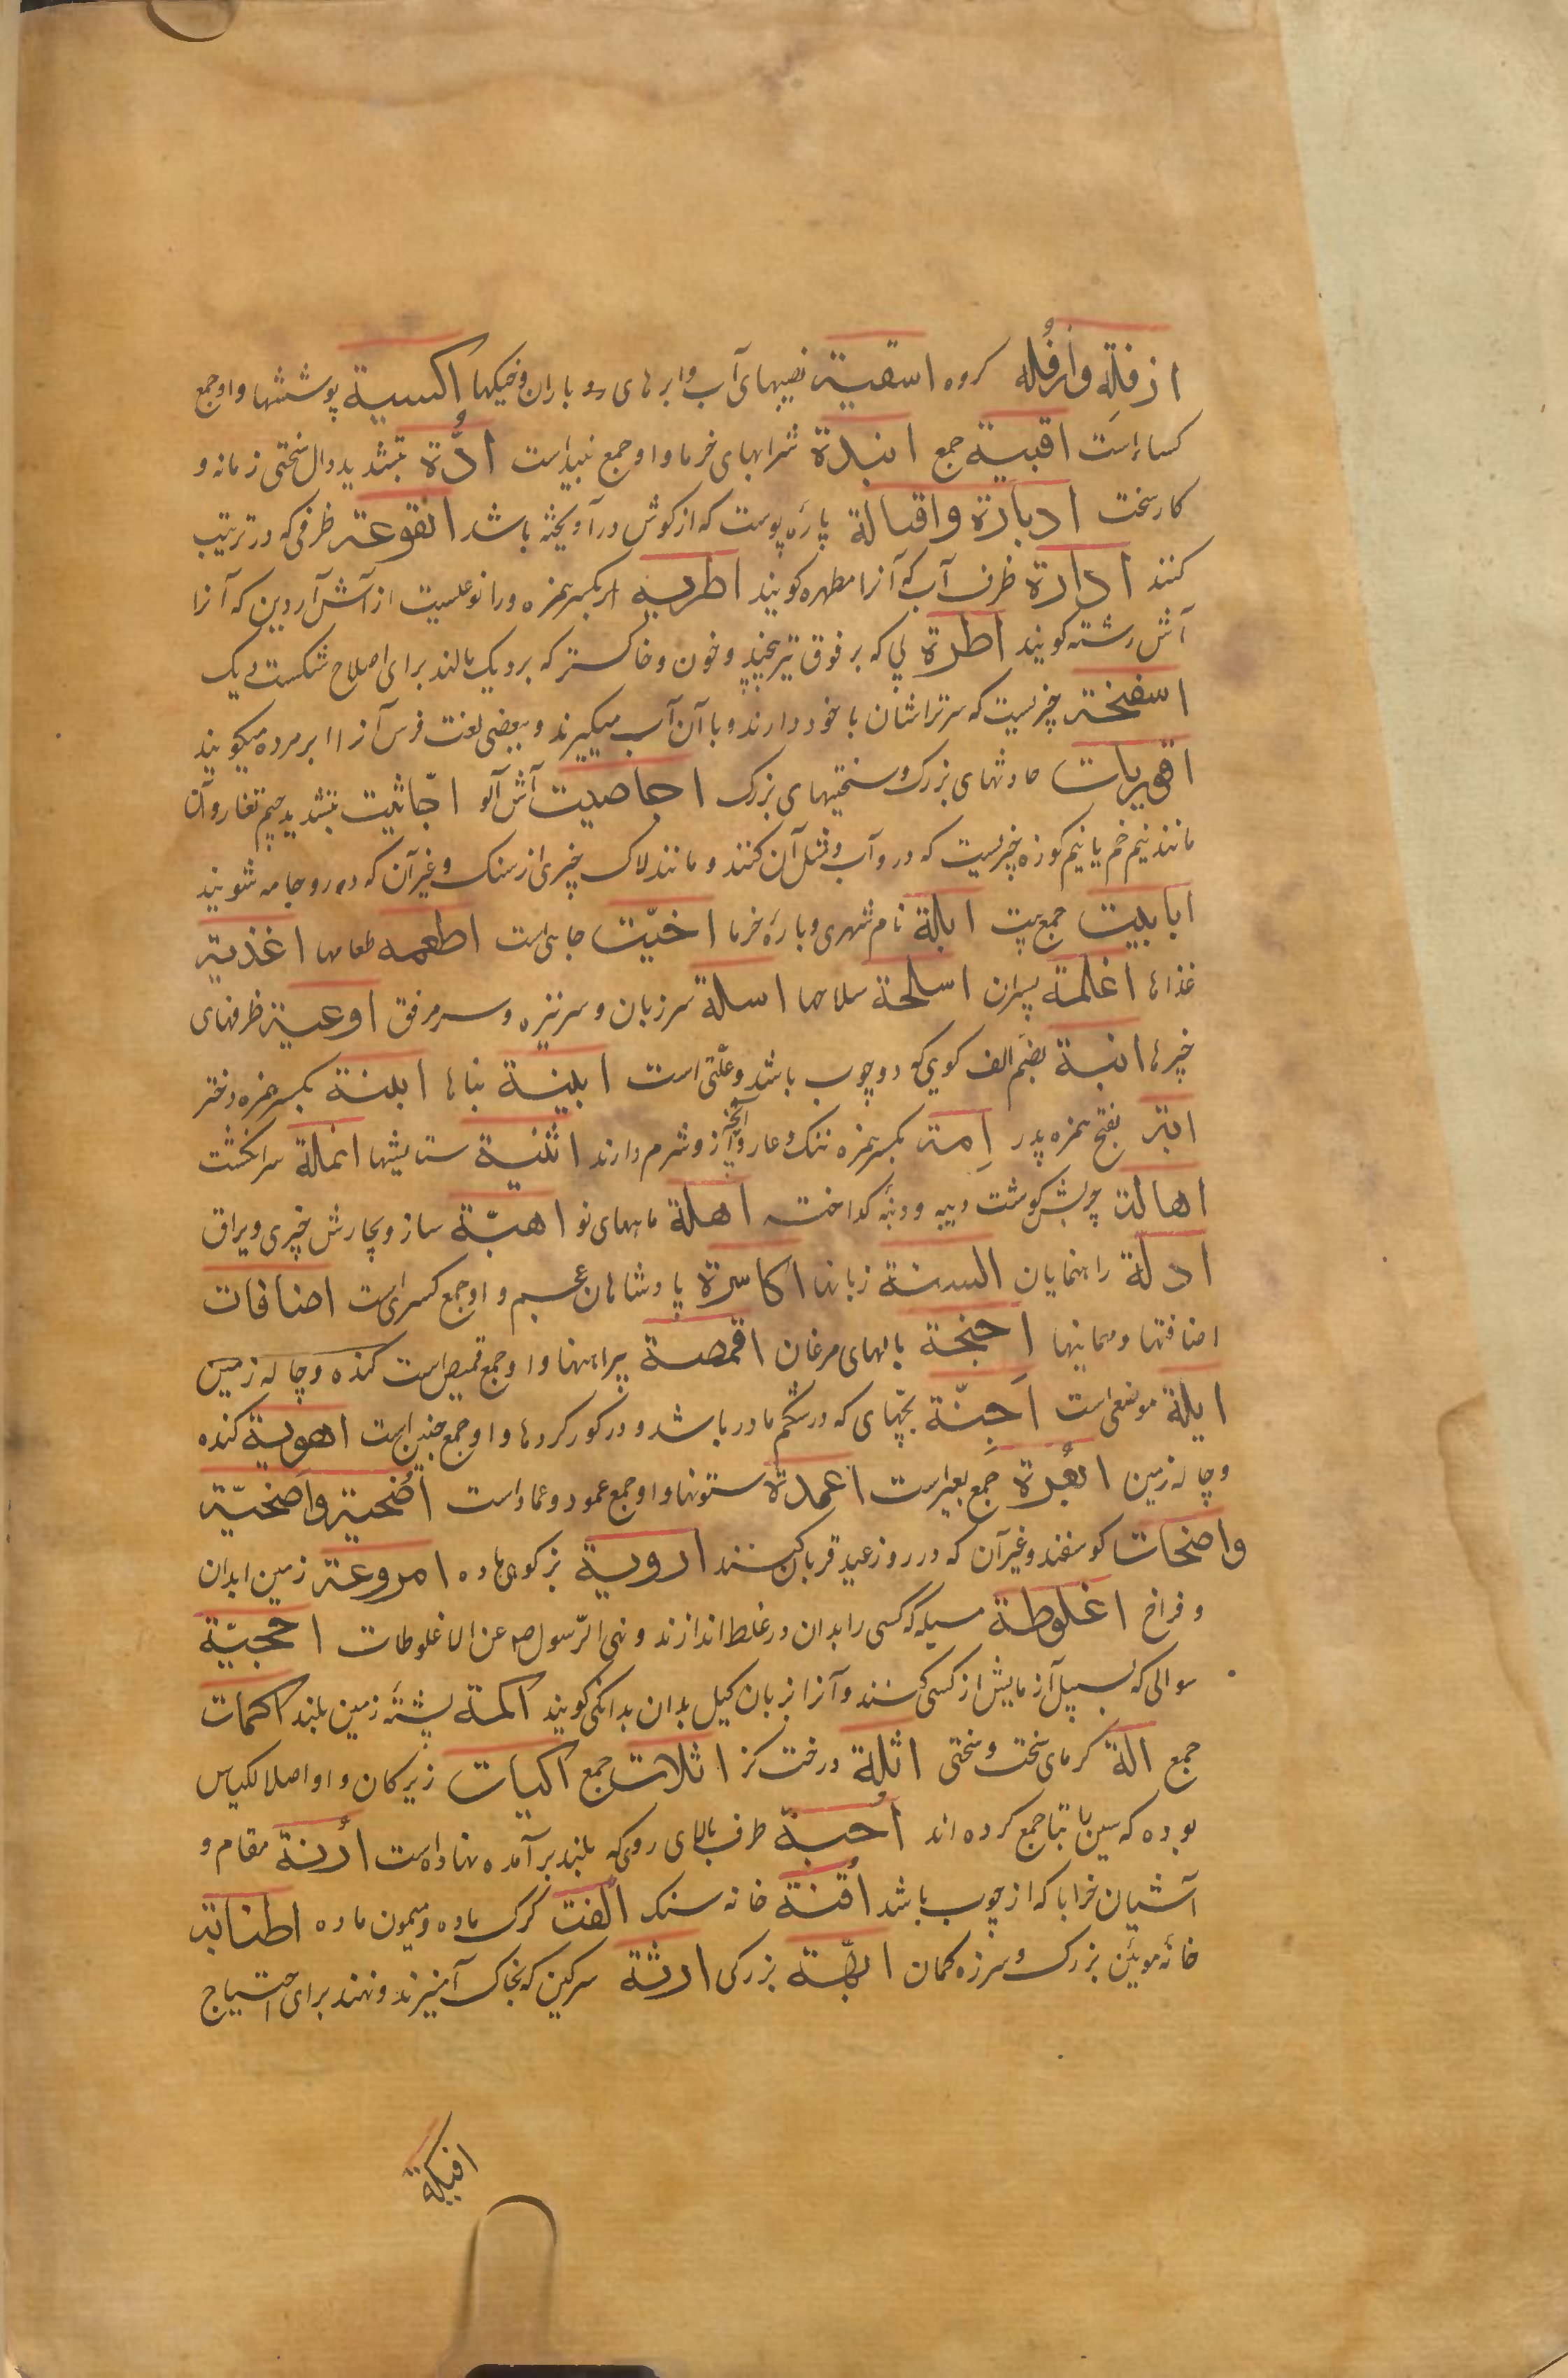 ازفلَه واُزفُله کروه اسقیة نصیبهای آب و ابرهای رو باران و خیکها اکسیة پوششها و او جمع
کساء است اقبیة جمع انبذة شرابهای خرما و او جمع نبیذ است ادّة بتشدید دال سختی زمانه و
کار سخت ادبارة واقبالة پارهٔ پوست که از کوش در آویخته باشد انقوعة ظرفی که در ترتیب
کنند ادارة ظرف آب که آنرا مطهره کویند اطریه بکسر همزه و را نوعیست از آش آردین که آنرا
آش رشته کویند اطرة پی که بر فوق تیر پیچند و خون و خاکستر که بر دیک مالند برای اصلاح شکست دیک
اسفنخة چیزیست که سرتراشان با خود دارند و با آن آب میکیرند و ببعضی لغت فرس آنرا ابر مرده میکویند
اقوریات حادثهای بزرک و سختیهای بزرک اجاصیت آش آلو اجّانیت بتشدید جیم تغار و آن
مانند نیم خم یا نیم کوزه چیزیست که در و آب و مثل آن کنند و مانند لاک چیزی از سنک و غیر آن که در و جامه شویند
ابابیت جمع بیت ابلة نام شهری و بارهٔ خرما اخیّت جایی است اطعمه طعامها اغذیة
غذاها اغلمة پسران اسلحة سلاحها اسلة سر زبان و سر نیزه و سر مرفق اوعیة ظرفهای
چیزها انبة بضم الف کویی که دو چوب باشد و علّتی است ابنیة بناها ابنة بکسر همزه دختر
ابة بفتح همزه پدر اِمة بکسر همزه ننک و عار و آنچه از و شرم دارند اثنیة ستایشها انملة سر انکشت
اهالة چربش کوشت و پیه و دنبه کداخته اهلة ماههای نو اهبّة ساز و بچارش چیزی و یراق
ادلة راهنمایان السنة زبانها اکاسرة پادشاهان عجم و او جمع کسری است اضافات
اضافتها و مهمانیها اجنحة بالهای مرغان اقمصة پیراهنها و او جمع قمیص است کنده و چاله زمین
ایلة موضعی است اَجنّة بچّهای که در شکم مادر باشد و در کور کردها و او جمع جنین است اهویة کنده
و چاله زمین ابعُرة جمع بعیر است اعمدة ستونها و او جمع عمود و عماد است اُضحیة واَضحیّة
واضحات کوسفند و غیر آن که در روز عید قربان کشند ارویة بز کوهی ماده امروعة زمین ابدان
و فراخ اغلوطة مسئله که کسی را بدان در غلط اندازند و نهی الرّسول صم عن الاغلوطات احجیّة
سوالی که بسبیل آزمایش از کسی کنند و آنرا بزبان کیل بدان بدانکی کویند اکمة پشتهٔ زمین بلند اکمات
جمع الة کرمای سخت و سختی اثلة درخت کز اثلات جمع اکیات زیرکان و او اصلا لکیاس
بوده که سین را بتا جمع کرده‌اند اُحبة طرف بالای روی که بلند بر آمده نهاده است اُرنة مقام و
آشیان خرابا که از چوب باشد اُقنة خانه سنک الفت کرک ماده و میمون ماده اطنابة
خانهٔ مویین بزرک و سر زه کمان ابهّة بزرکی ارثة سرکین که بخاک آمیزند و نهند برای احتیاج
افیکة